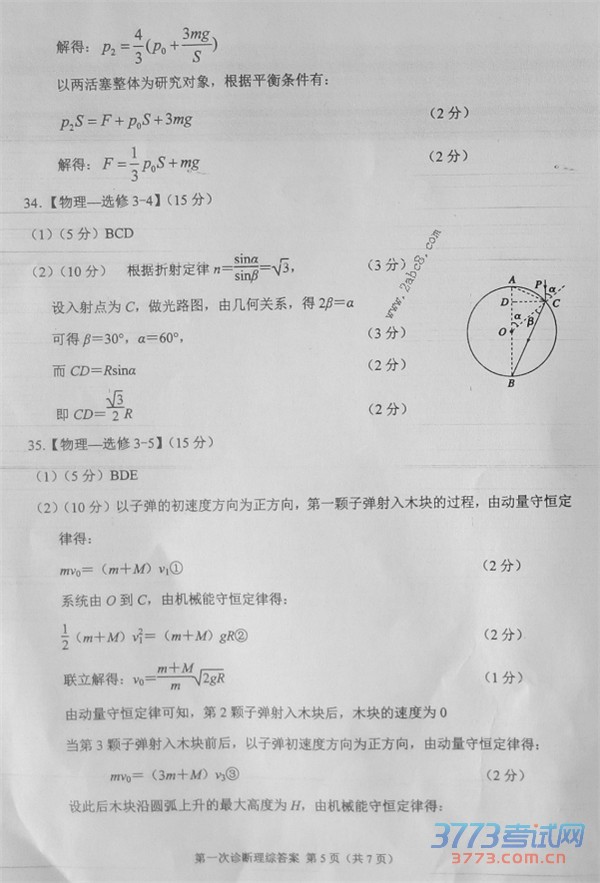 解得：p₂=4/3(p₀+3mg/S)
以两活塞整体为研究对象，根据平衡条件有：
p₂S=F+p₀S+3mg （2分）
解得：F=1/3 p₀S+mg （2分）
34.【物理—选修3-4】(15分)
(1)(5分) BCD
(2)(10分) 根据折射定律n=sinα/sinβ=√3， (3分)
设入射点为C，做光路图，由几何关系，得2β=α
可得β=30°，α=60°， (3分)
而CD=Rsinα (2分)
即CD=√3/2 R (2分)
A P α
D C
α
O β
B
www.2abc8.com
35.【物理—选修3-5】(15分)
(1)(5分) BDE
(2)(10分) 以子弹的初速度方向为正方向，第一颗子弹射入木块的过程，由动量守恒定
律得：
mv₀=（m+M）v₁① (2分)
系统由O到C，由机械能守恒定律得：
1/2（m+M）v₁²=（m+M）gR② (2分)
联立解得：v₀=(m+M)/m √2gR (1分)
由动量守恒定律可知，第2颗子弹射入木块后，木块的速度为0
当第3颗子弹射入木块前后，以子弹初速度方向为正方向，由动量守恒定律得：
mv₀=（3m+M）v₃③ (2分)
设此后木块沿圆弧上升的最大高度为H，由机械能守恒定律得：
第一次诊断理综答案 第5页（共7页）
3773考试网
3773.com.cn